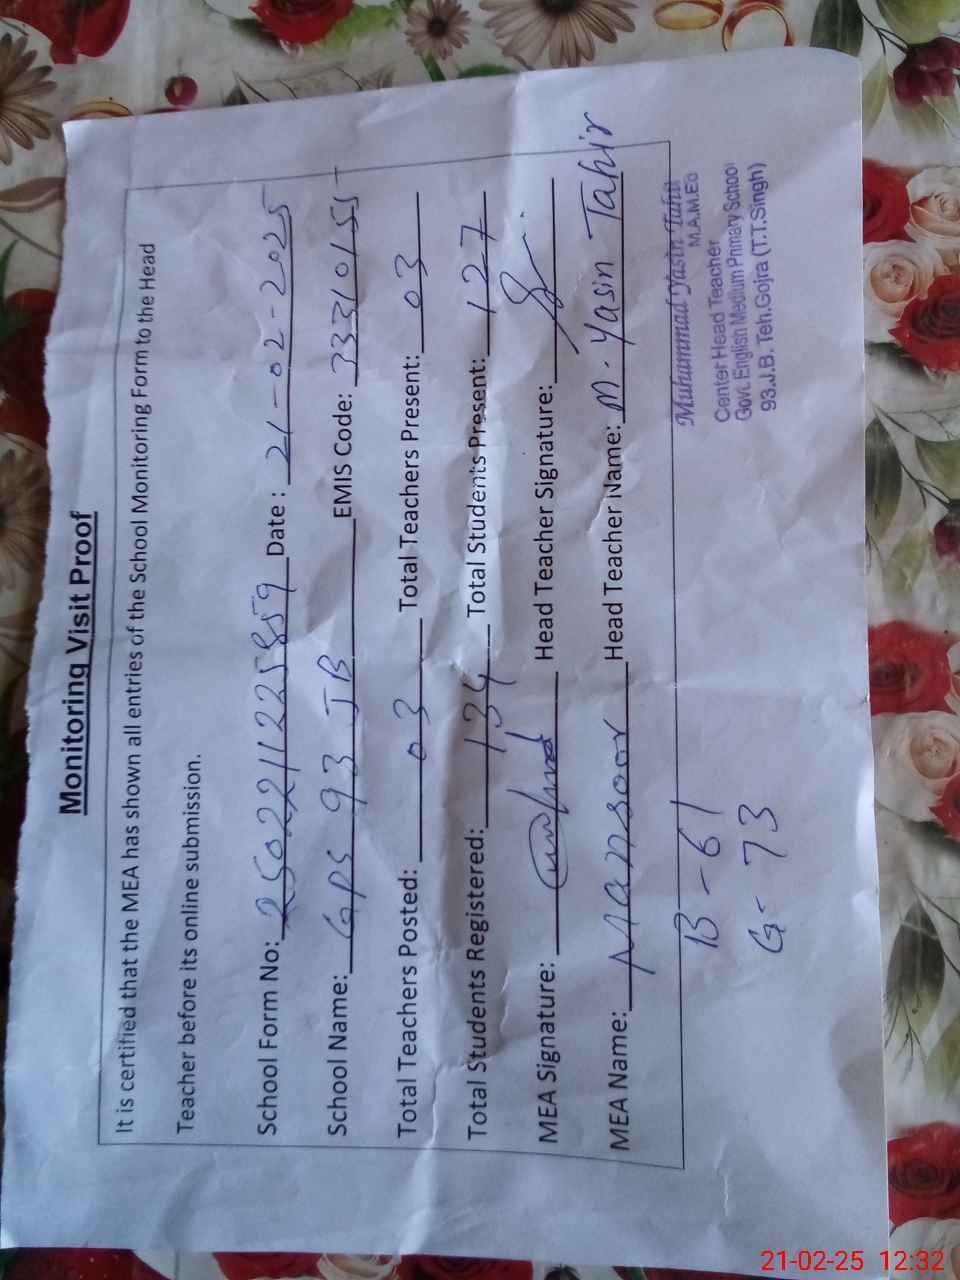 Monitoring Visit Proof
It is certified that the MEA has shown all entries of the School Monitoring Form to the Head
Teacher before its online submission.
School Form No: 250221122859 Date : 21-02-2025
School Name: GPS 93 JB EMIS Code: 33310155
Total Teachers Posted: 03 Total Teachers Present: 03
Total Students Registered: 134 Total Students Present: 127
MEA Signature: Head Teacher Signature:
MEA Name: Mansoor Head Teacher Name: M. Yasin Tahir
B - 61
G - 73
Muhammad Yasin Tahir
M.A.M.Ed
Center Head Teacher
Govt. English Medium Primary School
93.J.B. Teh.Gojra (T.T.Singh)
21-02-25 12:32